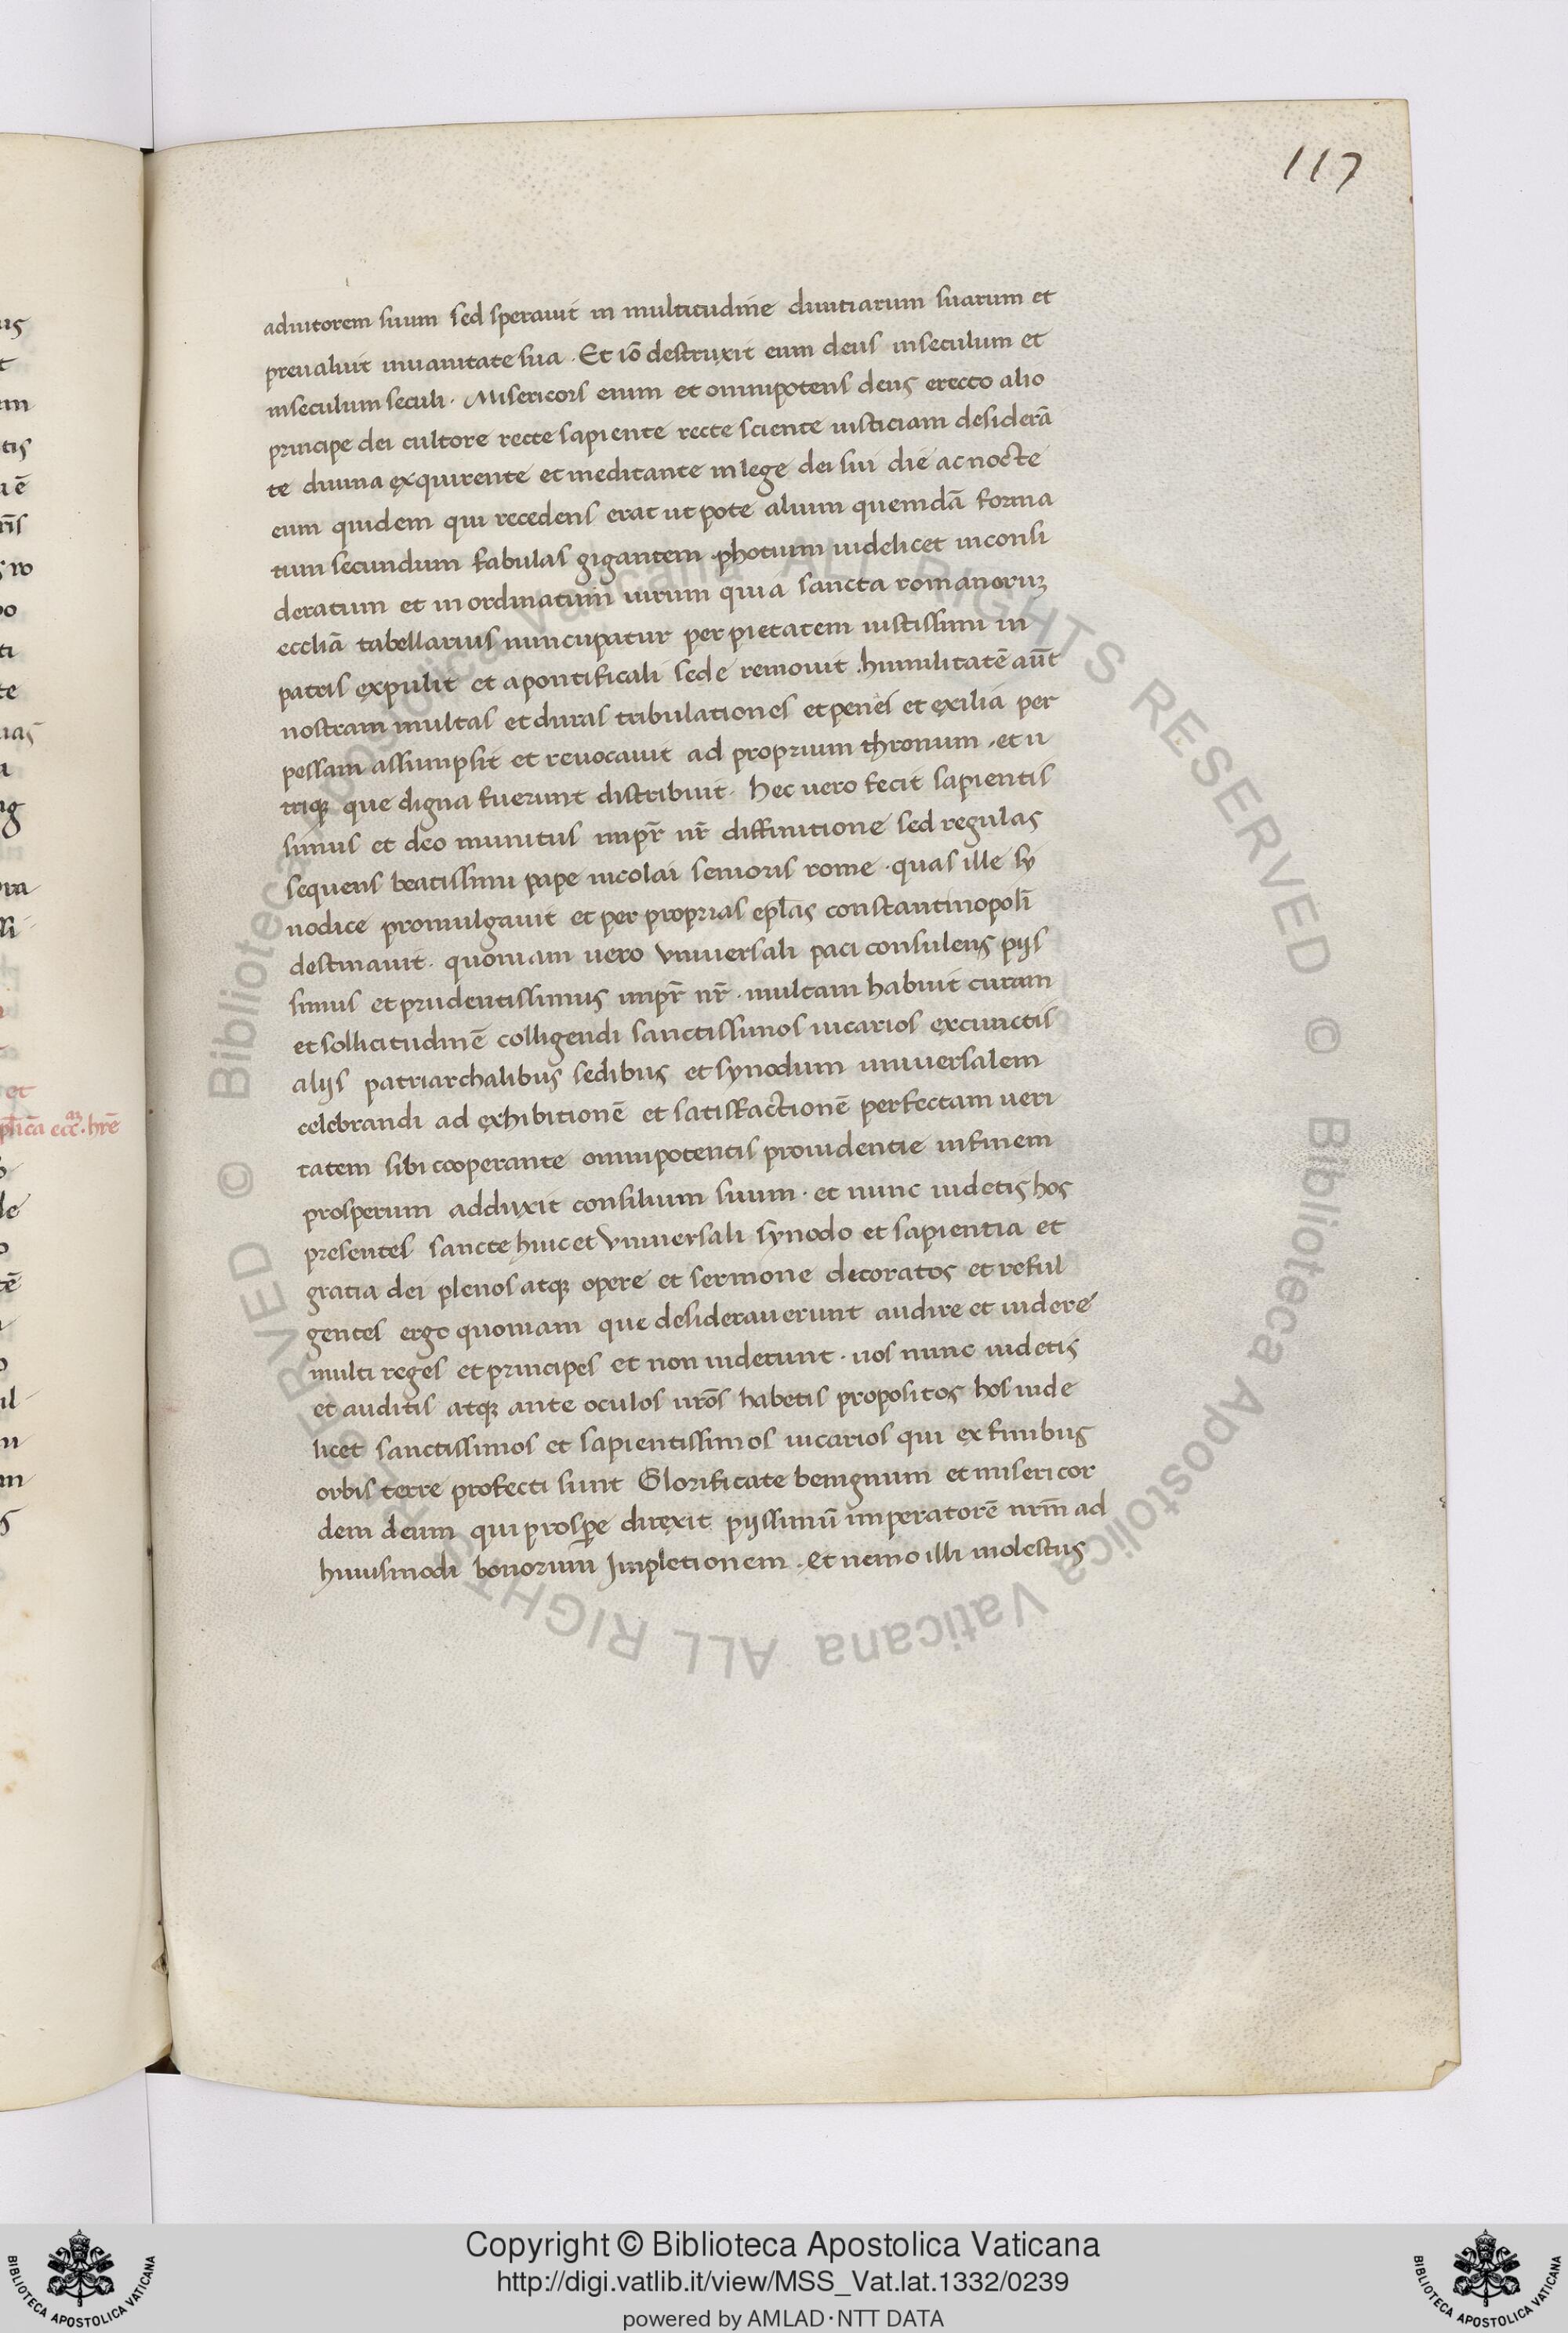 117
adiutorem suum sed sperauit in multitudine diuitiarum suarum et
preualuit inuanitate sua . Et iō destruxit eum deus inseculum et
inseculum seculi . Misericors enim et omnipotens deus erecto alio
principe dei cultore recte sapiente recte sciente iusticiam desiderā
te diuina exquirente et meditante in lege dei sui die ac nocte
eum quidem qui recedens erat ut pote alium quemdā forma
tum secundum fabulas gigantem photium uidelicet inconsi
deratum et in ordinatum uirum qui a sancta romanoruꝫ
eccliā tabellarius nuncupatur per pietatem iustissimi in
patris expulit et apontificali sede remouit . humilitatē aūt
nostram multas et duras tribulationes et penes et exilia per
pessam assumpsit et reuocauit ad proprium thronum . et u
triqꝫ que digna fuerunt distribuit . hec uero fecit sapientis
simus et deo munitus impr̄ nr̄ diffinitione sed regulas
sequens beatissimi pape nicolai senioris rome . quas ille sy
nodice promulgauit et per proprias epl̄as constantinopolī
destinauit . quoniam uero vniuersali paci consulens pijs
simus et prudentissimus impr̄ nr̄ . multam habuit curam
et sollicitudinē colligendi sanctissimos uicarios excunctis
alijs patriarchalibus sedibus et synodum uniuersalem
celebrandi ad exhibitionē et satisfactionē perfectam ueri
tatem sibi cooperante omnipotentis prouidentie infinem
prosperum adduxit consilium suum . et nunc uidetis hos
presentes sancte huic et vniuersali synodo et sapientia et
gratia dei plenos atqꝫ opere et sermone decoratos et reful
gentes ergo quoniam que desiderauerunt audire et uidere
multi reges et principes et non uiderunt . uos nunc uidetis
et auditis atqꝫ ante oculos urōs habetis propositos hos uide
licet sanctissimos et sapientissimos uicarios qui ex finibus
orbis terre profecti sunt Glorificate benignum et misericor
dem deum qui prosp̱e direxit pijssimū imperatorē nrm̄ ad
huiusmodi bonorum Impletionem . et nemo illi molestus
Copyright © Biblioteca Apostolica Vaticana
http://digi.vatlib.it/view/MSS_Vat.lat.1332/0239
powered by AMLAD·NTT DATA